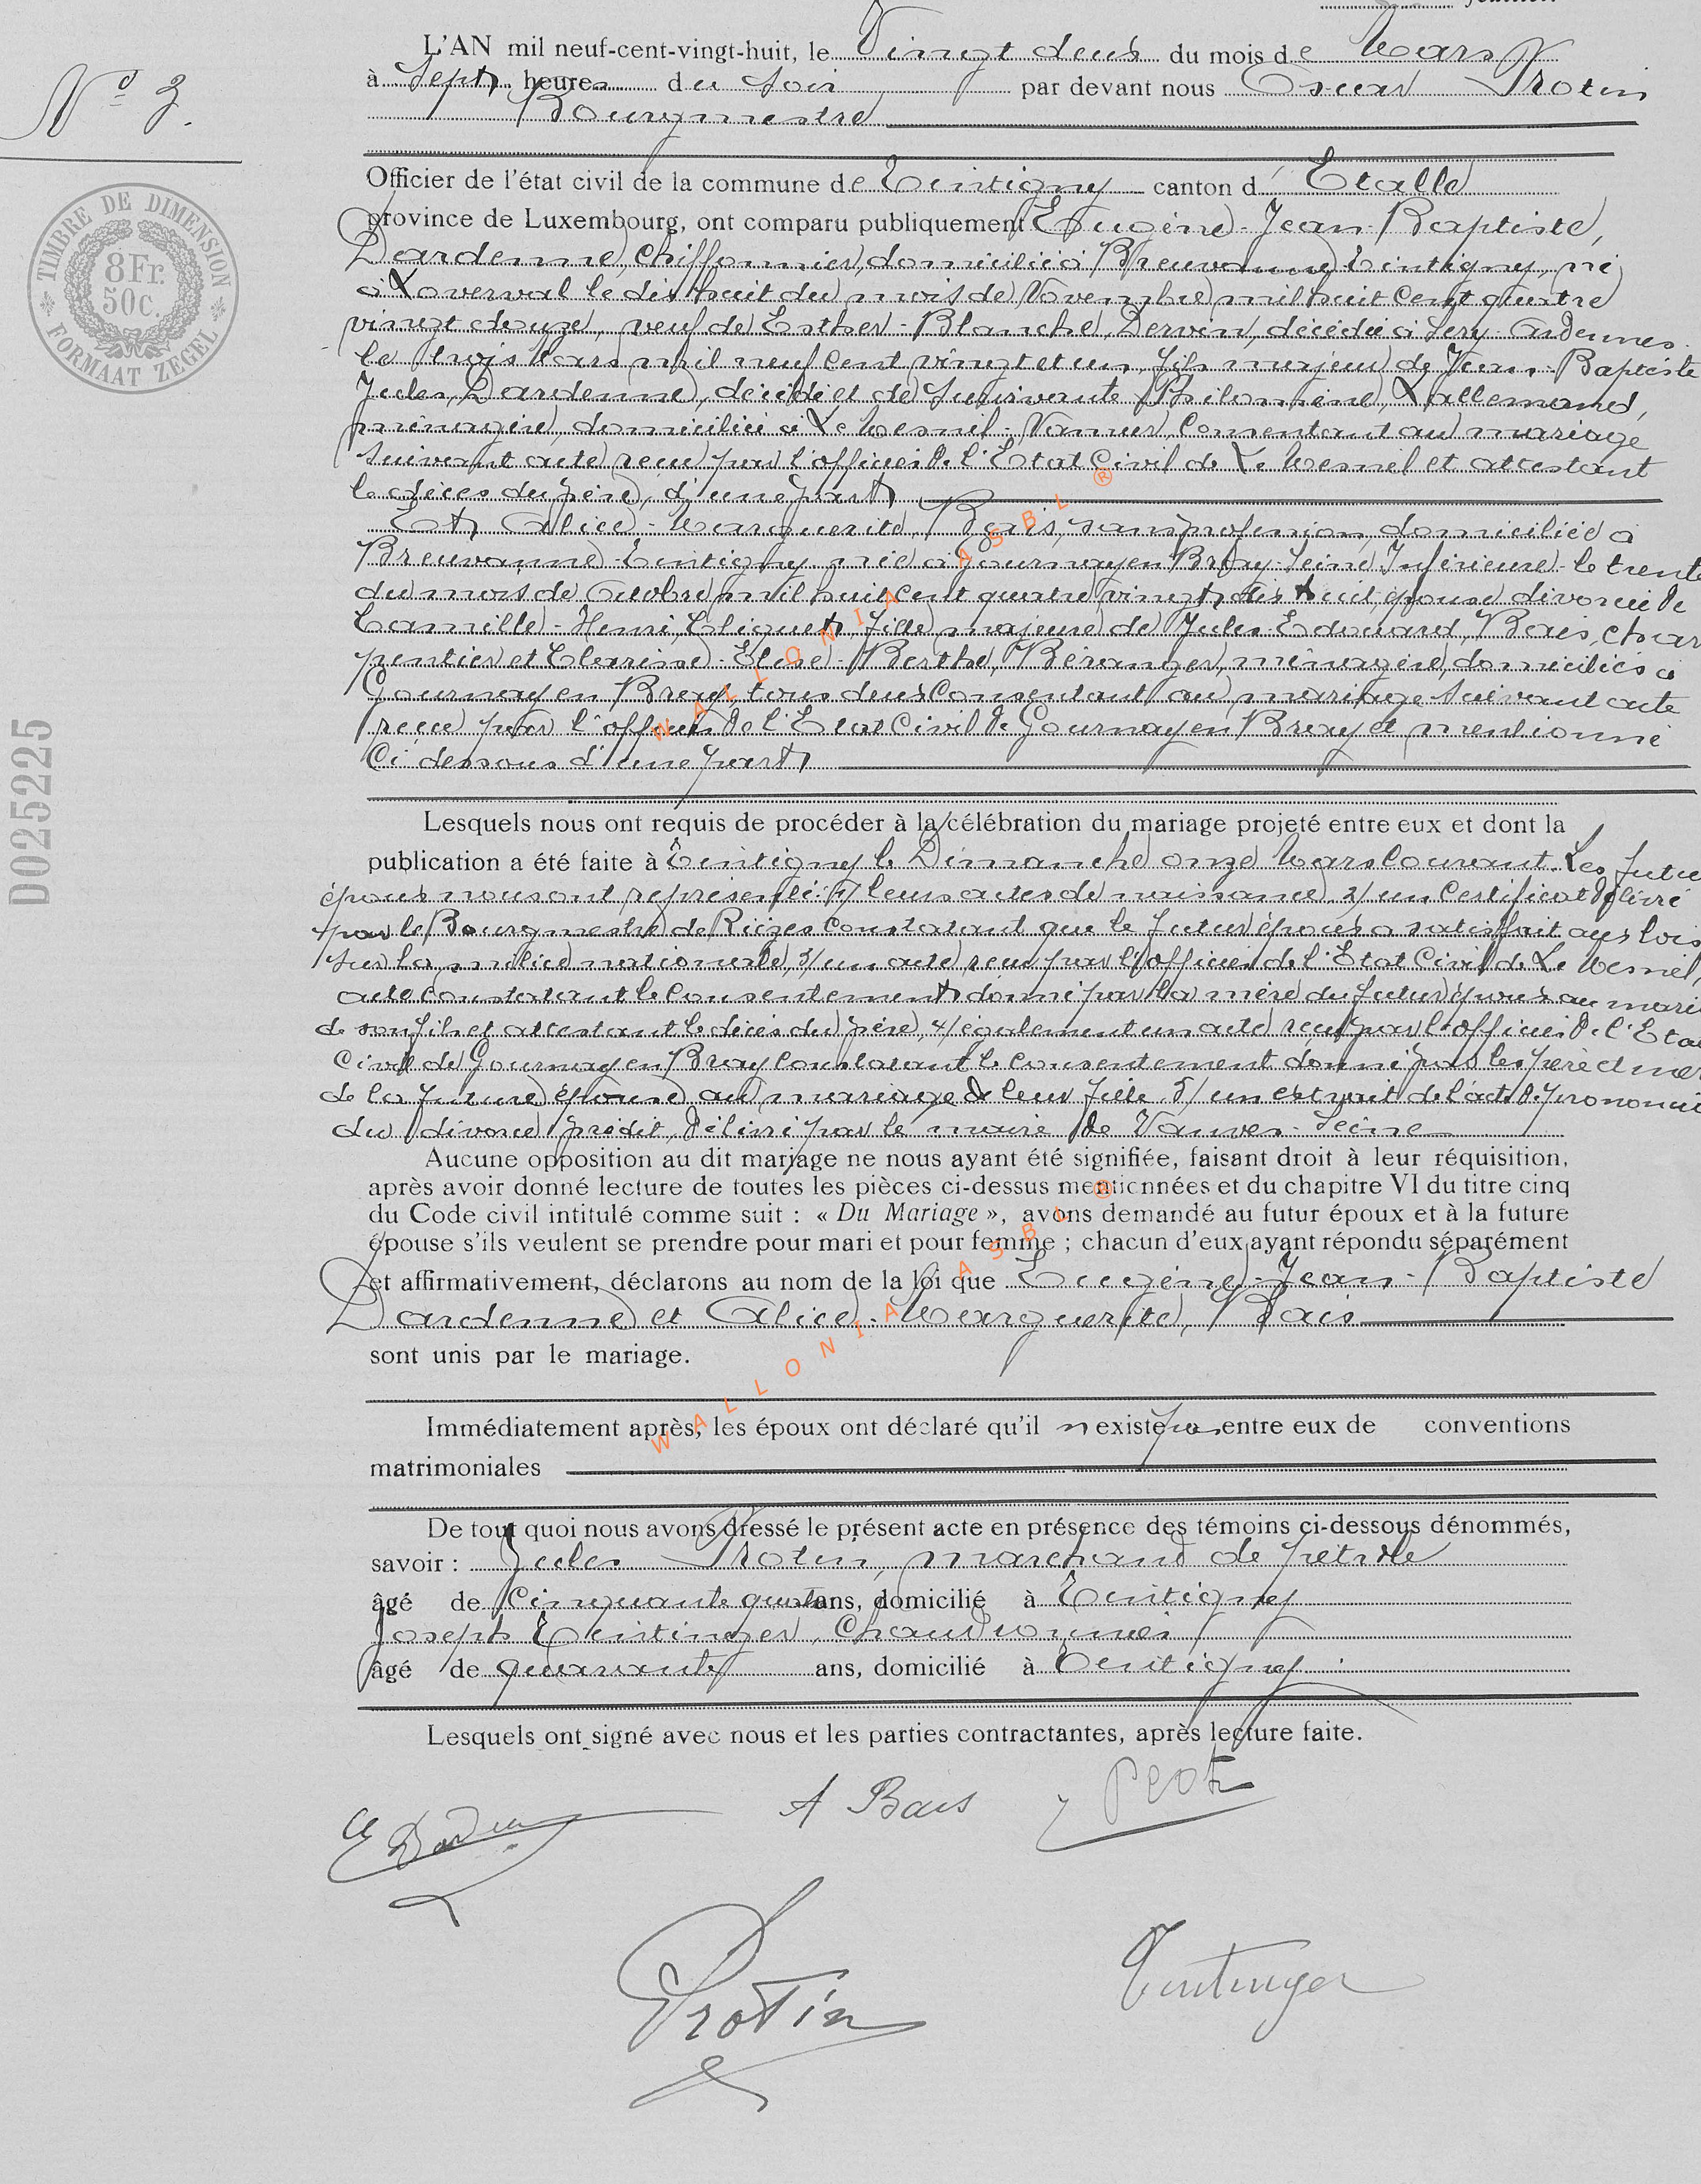 L'AN mil neuf-cent-vingt-huit, le Vingt deux du mois de Mars
à Sept heures du Soir par devant nous Oscar Protin
Bourgmestre
N° 3.
Officier de l'état civil de la commune de Tintigny canton d' Etalle
province de Luxembourg, ont comparu publiquement Eugène-Jean-Baptiste,
Dardenne, Chiffonnier, domicilié à Breuvanne Tintigny, né
à Loverval le dix huit du mois de Novembre mil huit cent quatre
vingt douze, veuf de Esther-Blanche, décédée à Séry-Ardennes
le trois Mars mil neuf cent vingt et un, fils majeur de Jean-Baptiste
Jules, Dardenne, décédé et de Survivante Philomène, Lallemand,
ménagère, domiciliée à Le Mesnil, Consentant au mariage
suivant acte reçu par l'officier de l'Etat Civil de Le Mesnil et attestant
le décès du père, d'une part
Et Alice-Marguerite, Bais, sans profession, domiciliée à
Breuvanne-Tintigny née à Gournay en Bray-Seine Inférieure-le trente
du mois de Octobre mil huit cent quatre vingt dix huit, épouse divorcée de
Camille-Henri, Cliquet, fille majeure de Jules Edouard, Bais, char
pentier et Clarisse-Elise-Berthe, Béranger, ménagère, domiciliés à
Gournay en Bray, tous deux Consentant au mariage suivant acte
reçue par l'officier de l'Etat Civil de Gournay en Bray et mentionné
Ci dessous d'une part
TIMBRE DE DIMENSION
8 Fr.
50c.
FORMAAT ZEGEL
D025225
Lesquels nous ont requis de procéder à la célébration du mariage projeté entre eux et dont la
publication a été faite à Tintigny le Dimanche onze Mars Courant. Les futu
époux nous ont représenté: 1/ leurs actes de naissance 2/ un Certificat délivré
par le Bourgmestre de Rièzes constatant que le futur époux a satisfait aux lois
sur la milice nationale, 3/ un acte reçu par l'officier de l'Etat Civil de Le Mesnil,
acte constatant le Consentement donné par la mère du futur époux au mari
de son fils et attestant le décès du père, 4/ également un acte reçu par l'officier de l'Eta
Civil de Gournay en Bray Constatant le Consentement donné par les père et mè
de la future épouse au mariage de leur fille 5/ un extrait de l'acte de prononcé
du divorce prédit, délivré par le maire de Vanves-Seine
Aucune opposition au dit mariage ne nous ayant été signifiée, faisant droit à leur réquisition,
après avoir donné lecture de toutes les pièces ci-dessus mentionnées et du chapitre VI du titre cinq
du Code civil intitulé comme suit : « Du Mariage », avons demandé au futur époux et à la future
épouse s'ils veulent se prendre pour mari et pour femme ; chacun d'eux ayant répondu séparément
et affirmativement, déclarons au nom de la loi que Eugène-Jean-Baptiste
Dardenne et Alice-Marguerite, Bais
sont unis par le mariage.
Immédiatement après, les époux ont déclaré qu'il n'existe pas entre eux de conventions
matrimoniales
De tout quoi nous avons dressé le présent acte en présence des témoins ci-dessous dénommés,
savoir : Jules Protin, marchand de pétrole
âgé de Cinquante quatre ans, domicilié à Tintigny
Joseph Tintinger, Chaudronnier
âgé de quarante ans, domicilié à Tintigny
Lesquels ont signé avec nous et les parties contractantes, après lecture faite.
A Bais
Protin
Tintinger
WALLONIA ASBL ®
WALLONIA ASBL ®